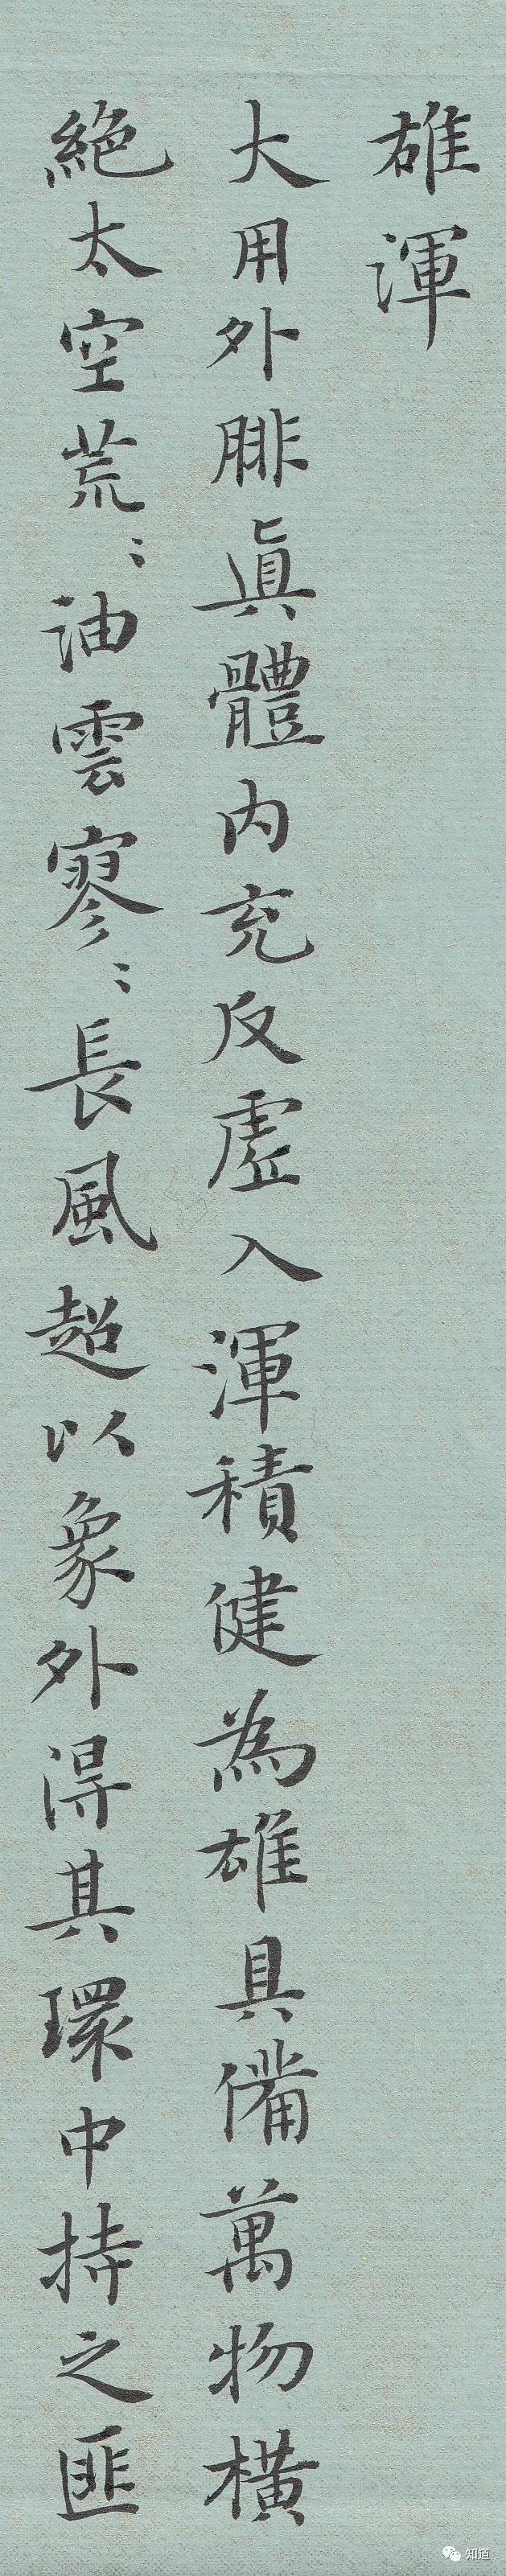 雄渾
大用外腓真體内充反虛入渾積健為雄具備萬物橫
絶太空荒〻油雲寥〻長風超以象外得其環中持之匪
知道